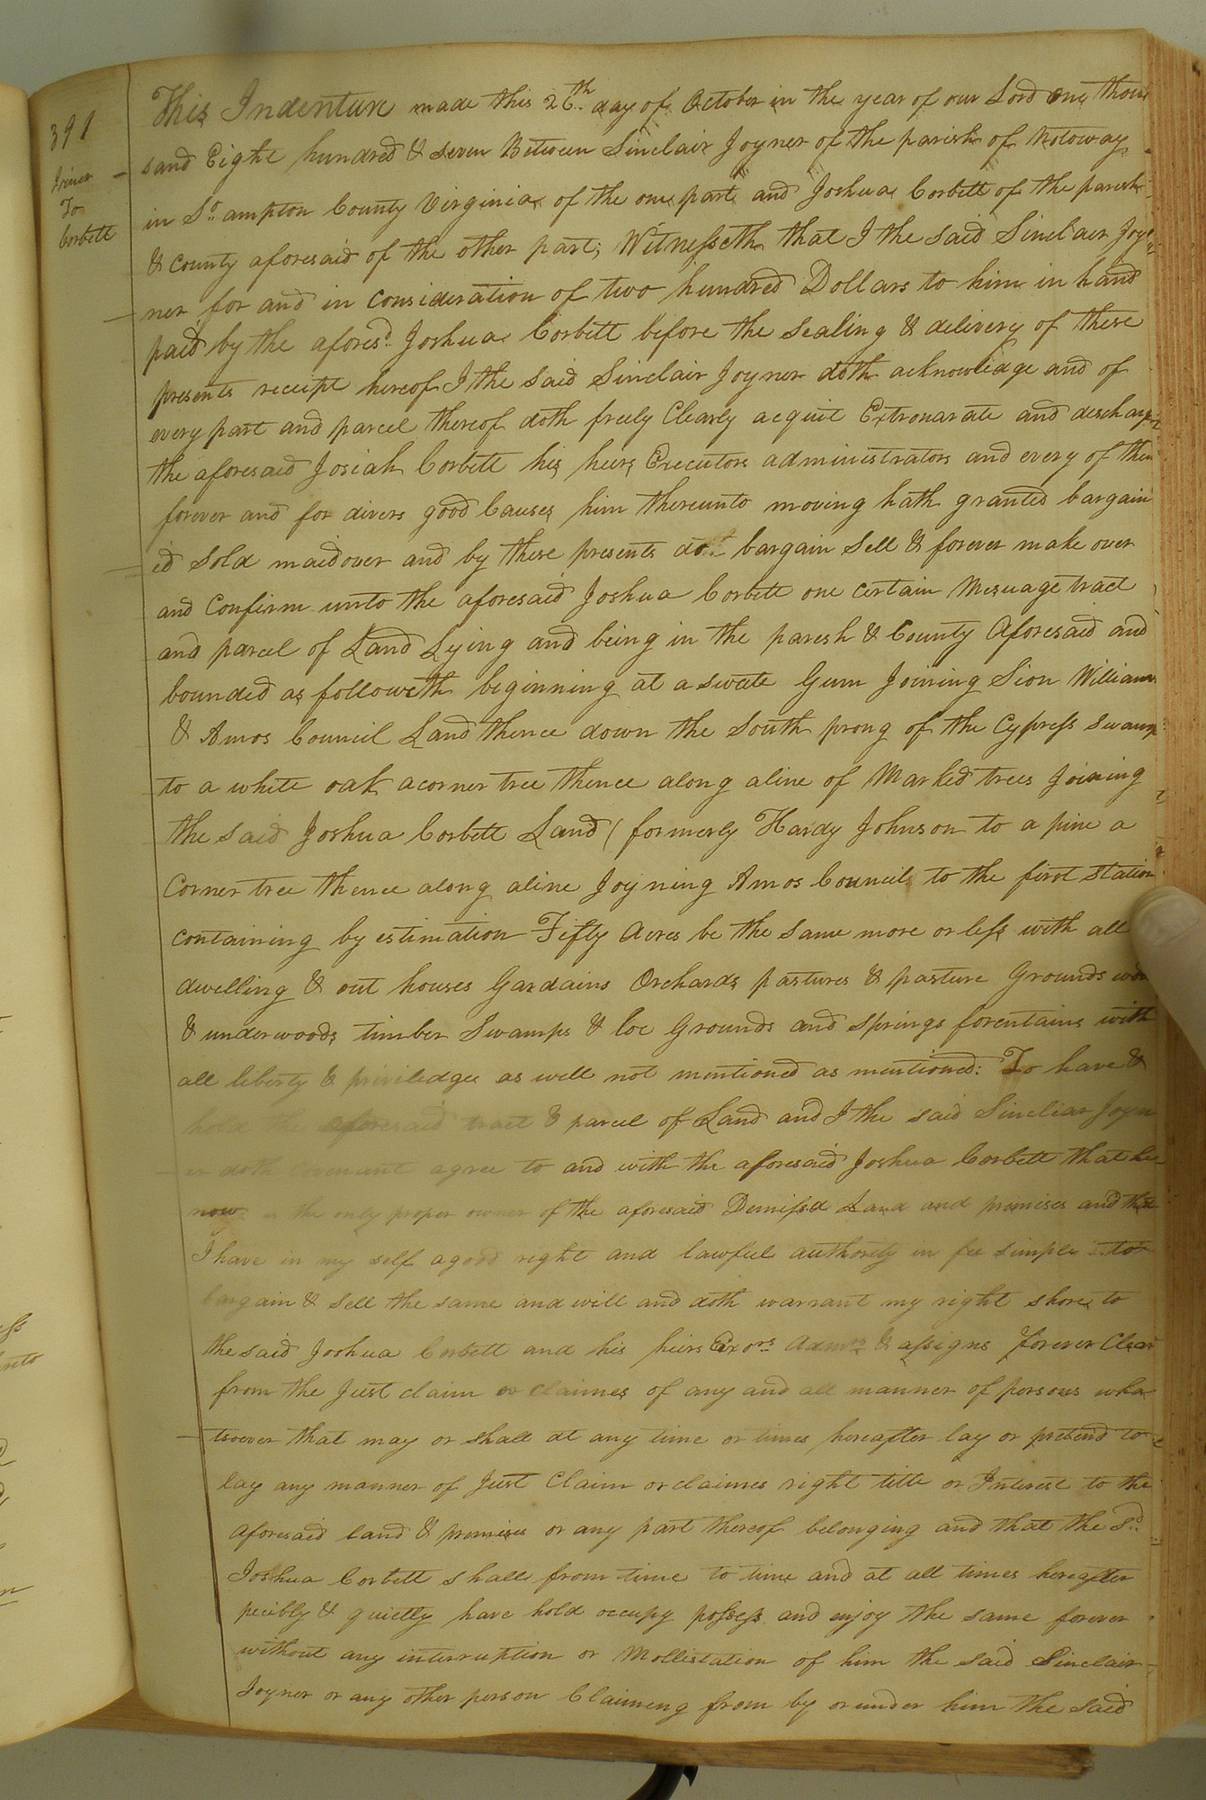 391
Joiner
To
Corbett
This Indenture made this 26th day of October in the year of our Lord one thou
sand Eight hundred & seven Between Sinclair Joyner of the parish of Notoway
in So.ampton County Virginia of the one part and Joshua Corbett of the parish
& County aforesaid of the other part; Witnesseth that I the said Sinclair Joy
ner for and in consideration of two hundred Dollars to him in hand
paid by the aforesd. Joshua Corbett before the sealing & delivery of these
presents receipt hereof I the said Sinclair Joyner doth acknowledge and of
every part and parcel thereof doth freely Clearly acquit Extronarate and discharge
the aforesaid Josiah Corbett his heirs Executors administrators and every of them
forever and for divers good Causes him thereunto moving hath granted bargain
ed sold maid over and by these presents do bargain Sell & forever make over
and Confirm unto the aforesaid Joshua Corbett one certain Mesuage tract
and parcel of Land Lying and being in the paresh & County Aforesaid and
bounded as followeth beginning at a swete Gum Joining Sion William
& Amos Council Land thence down the South prong of the Cypress Swamp
to a white oak a corner tree thence along a line of Marked trees Joining
the said Joshua Corbett Land ( formerly Hardy Johnson to a pine a
Corner tree thence along a line Joyning Amos Council to the first Station
containing by estimation Fifty Acres be the same more or less with all
dwelling & out houses Gardains Orchards pastures & pasture Grounds
& underwoods timber Swamps & loe Grounds and springs forentains with
all liberty & priviledges as well not mentioned as mentioned: To have &
hold the aforesaid tract & parcel of Land and I the said Sincliar Joyn
er doth covenant agree to and with the aforesaid Joshua Corbett that he
now is the only proper owner of the aforesaid Demissd Land and premises and that
I have in my self a good right and lawful authority in fee simple to
bargain & Sell the same and will and doth warrant my right shore to
the said Joshua Corbett and his heirs Exors Admrs & assigns forever Clear
from the Just claim or claimes of any and all manner of persons wha
tsoever that may or shall at any time or times hereafter lay or pretend to
lay any manner of Just Claim or claimes right title or Interest to the
aforesaid land & premises or any part thereof belonging and that the Sd
Joshua Corbett shall from time to time and at all times hereafter
pecibly & quietly have hold occupy possess and enjoy the same forever
without any interruption or Mollistation of him the said Sinclair
Joyner or any other person Claimeng from by or under him the said